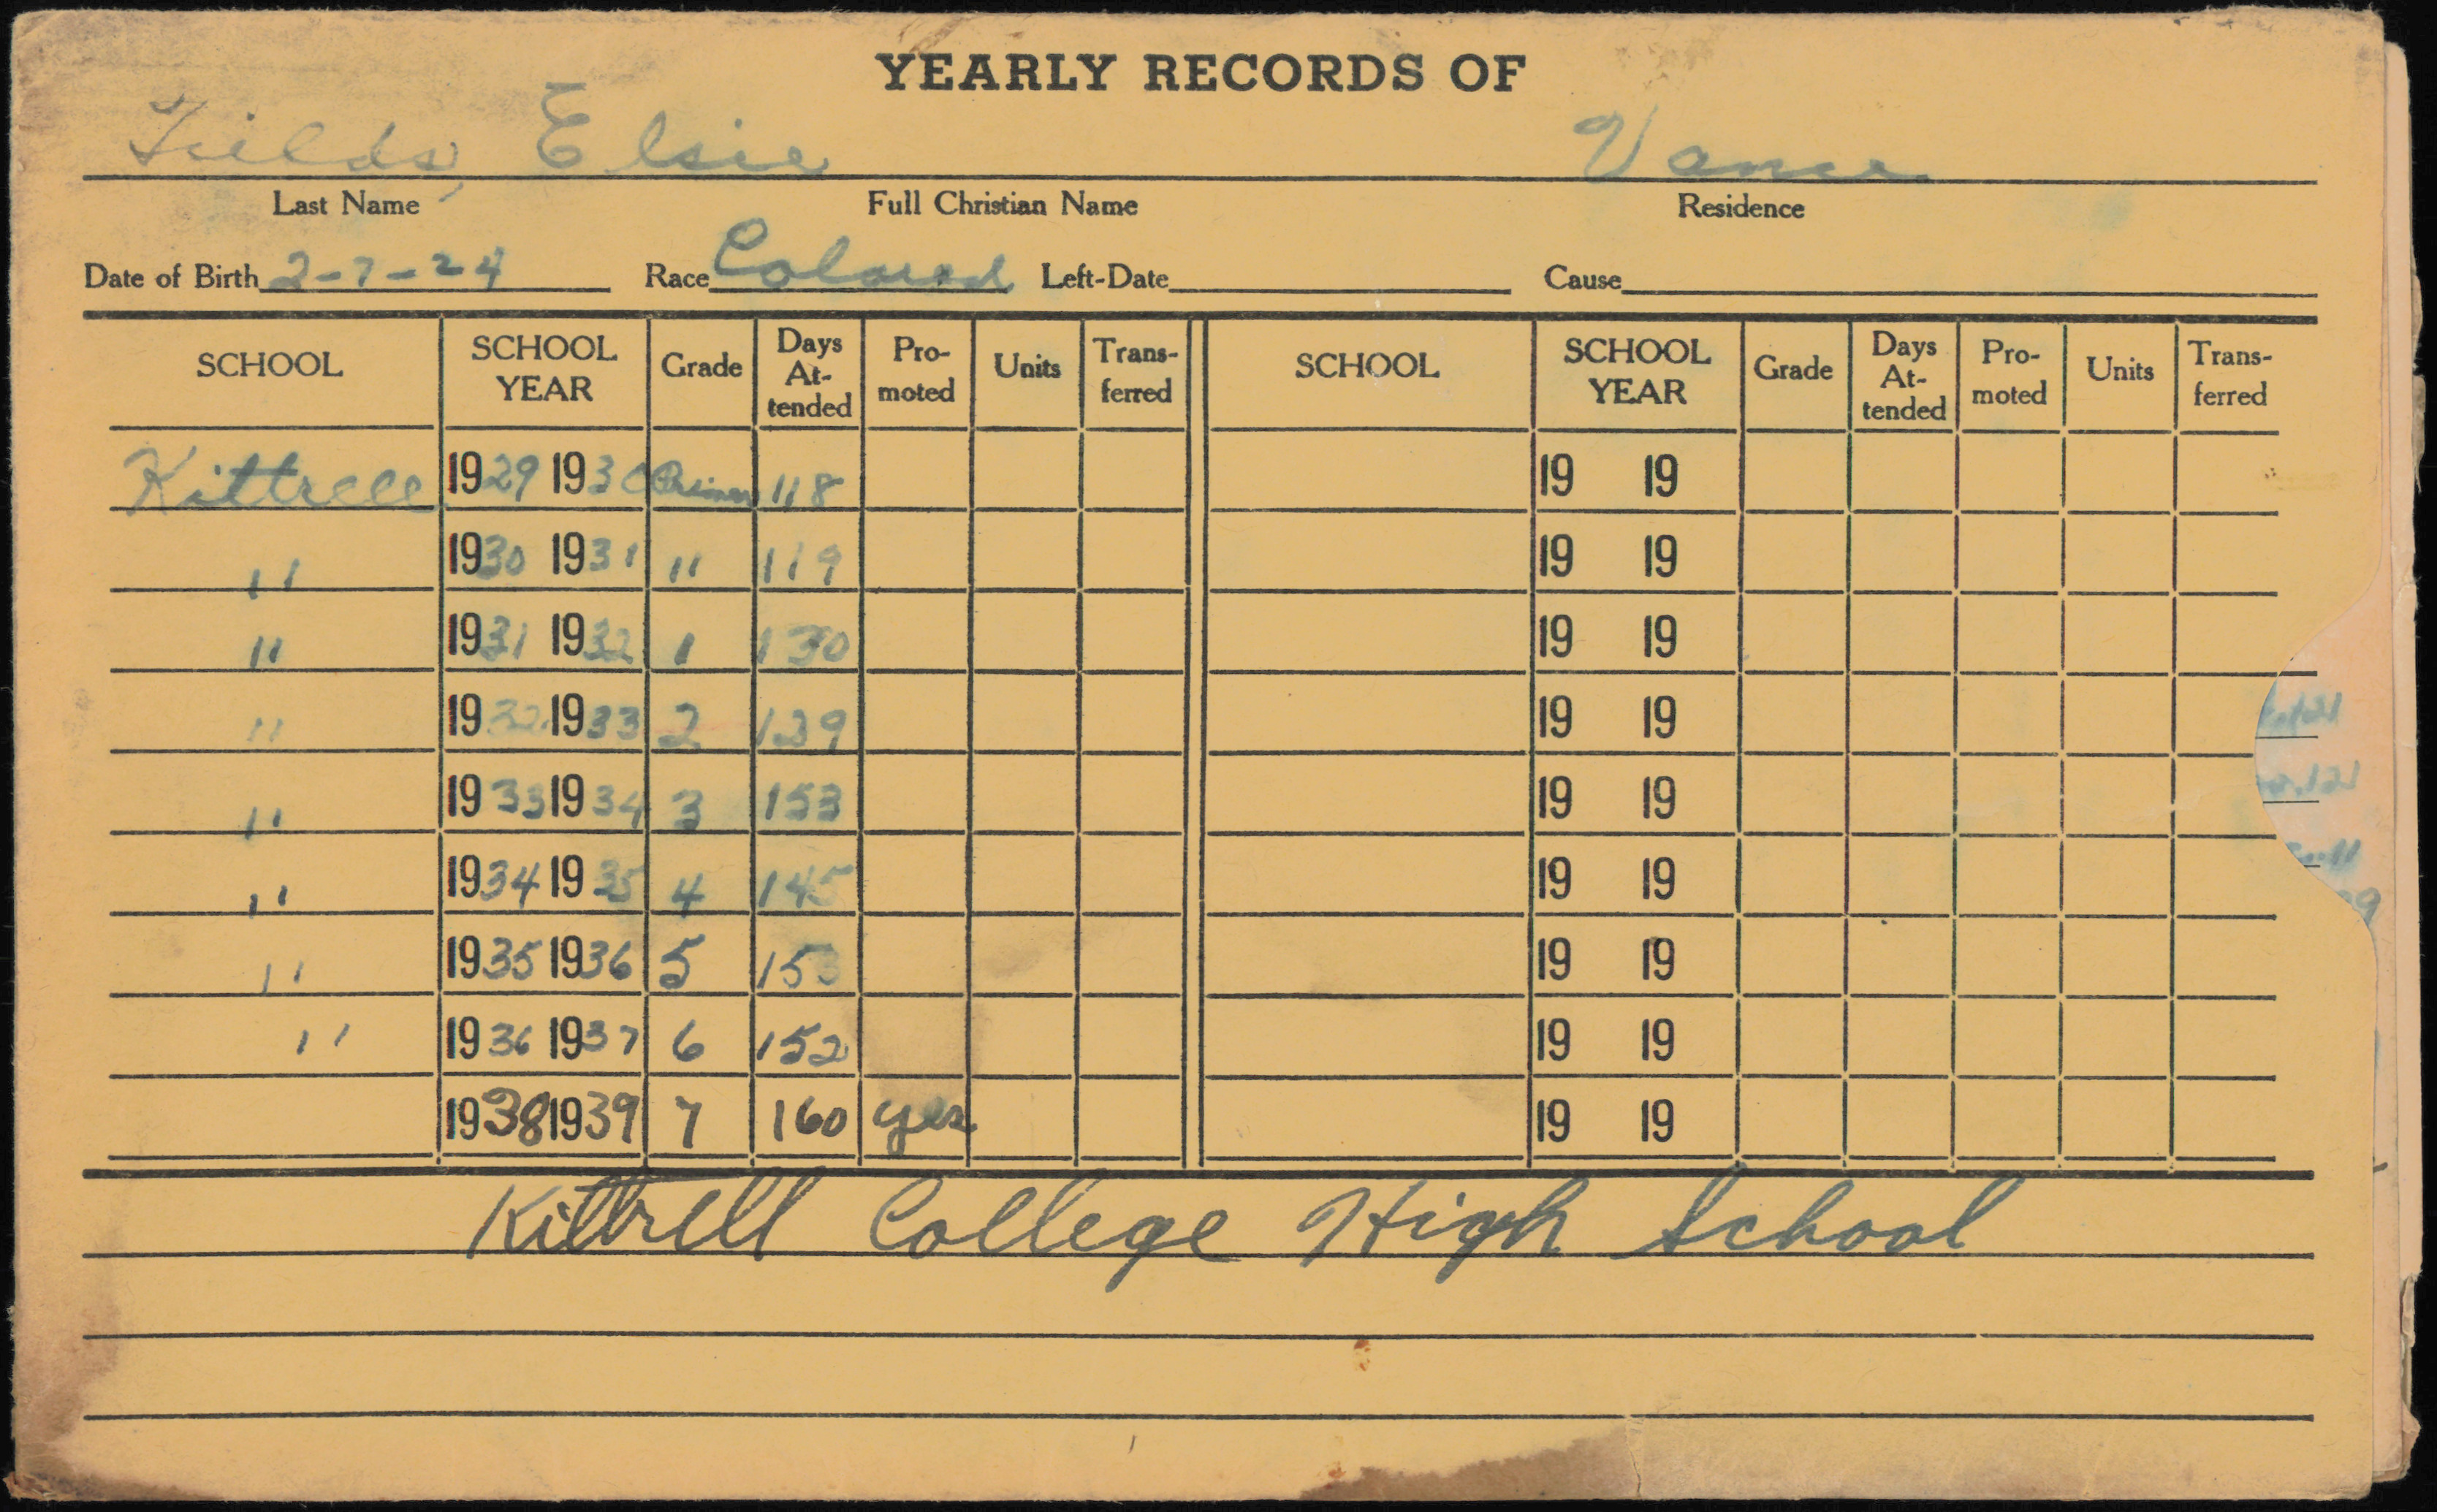 YEARLY RECORDS OF
Fields, Elsie Vance
Last Name Full Christian Name Residence
Date of Birth 2-7-24 Race Colored Left-Date Cause
SCHOOL SCHOOL YEAR Grade Days At-tended Pro-moted Units Trans-ferred SCHOOL SCHOOL YEAR Grade Days At-tended Pro-moted Units Trans-ferred
Kittrell 1929 1930 Primer 118 19 19
" 1930 1931 " 119 19 19
" 1931 1932 1 130 19 19
" 1932 1933 2 129 19 19
" 1933 1934 3 153 19 19
" 1934 1935 4 145 19 19
" 1935 1936 5 153 19 19
" 1936 1937 6 152 19 19
1938 1939 7 160 yes 19 19
Kittrell College High School